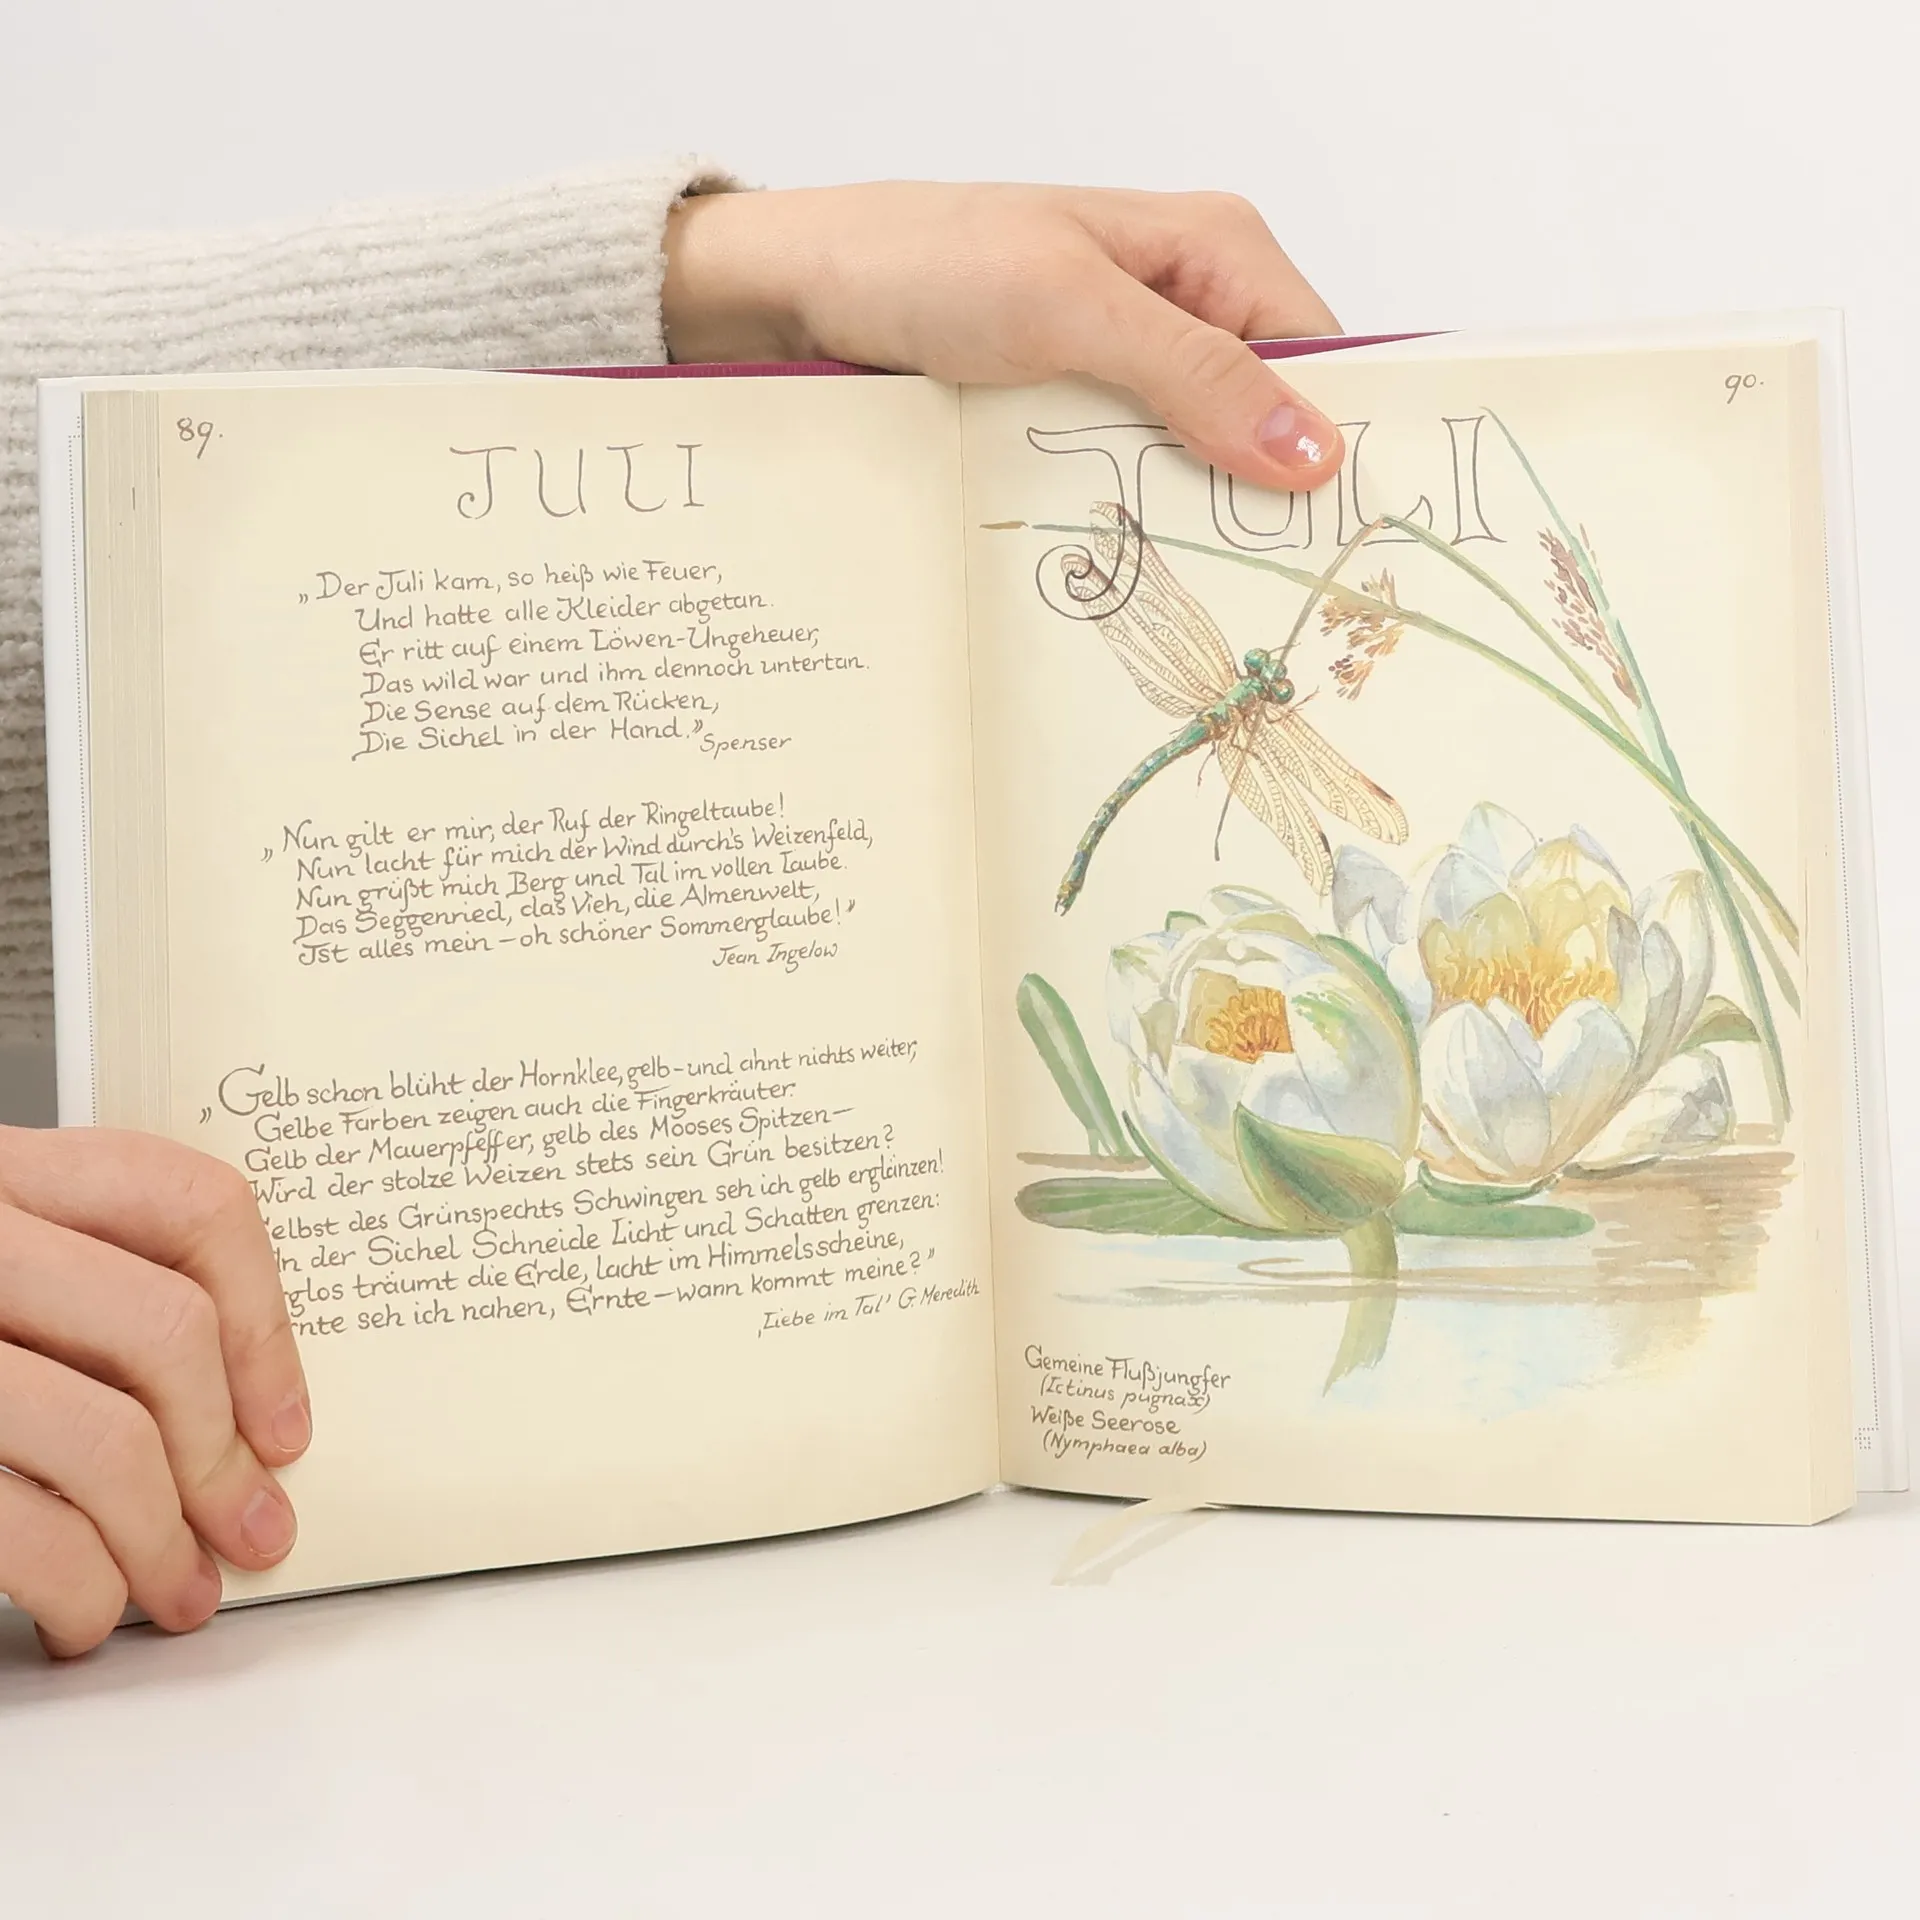 89.
JULI
„Der Juli kam, so heiß wie Feuer,
Und hatte alle Kleider abgetan.
Er ritt auf einem Löwen-Ungeheuer,
Das wild war und ihm dennoch untertan.
Die Sense auf dem Rücken,
Die Sichel in der Hand.”
Spenser
„Nun gilt er mir, der Ruf der Ringeltaube!
Nun lacht für mich der Wind durch's Weizenfeld,
Nun grüßt mich Berg und Tal im vollen Laube.
Das Seggenried, das Vieh, die Almenwelt,
Ist alles mein – oh schöner Sommerglaube!”
Jean Ingelow
„Gelb schon blüht der Hornklee, gelb – und ahnt nichts weiter,
Gelbe Farben zeigen auch die Fingerkräuter.
Gelb der Mauerpfeffer, gelb des Mooses Spitzen –
Wird der stolze Weizen stets sein Grün besitzen?
elbst des Grünspechts Schwingen seh ich gelb erglänzen!
In der Sichel Schneide Licht und Schatten grenzen:
glos träumt die Erde, lacht im Himmelsscheine,
nte seh ich nahen, Ernte – wann kommt meine?”
‚Liebe im Tal’ G. Meredith
90.
JULI
Gemeine Flußjungfer
(Ictinus pugnax)
Weiße Seerose
(Nymphaea alba)